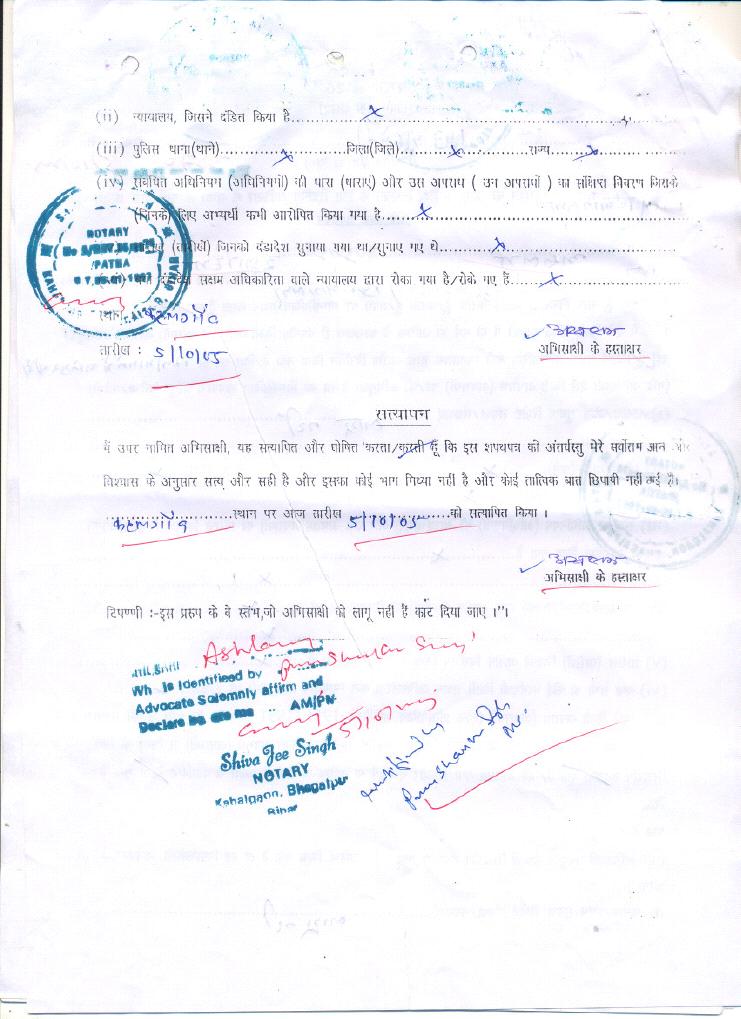 (ii) न्यायालय, जिसने दंडित किया है
(iii) पुलिस थाना(थाने) जिला(जिले) राज्य
(iv) संबंधित अधिनियम (अधिनियमों) की धारा (धाराएं) और उस अपराध ( उन अपराधों ) का संक्षिप्त विवरण जिसके
(जिनके) लिए अभ्यर्थी कभी आरोपित किया गया है
(तारीखें) जिनको दंडादेश सुनाया गया था/सुनाए गए थे
सक्षम अधिकारिता वाले न्यायालय द्वारा रोका गया है/रोके गए हैं
NOTARY
PATNA
स्थान : कहलगाँव
तारीख : 5/10/05
अभिसाक्षी के हस्ताक्षर
सत्यापन
मैं उपर नामित अभिसाक्षी, यह सत्यापित और घोषित करता/करती हूँ कि इस शपथपत्र की अंतर्वस्तु मेरे सर्वोत्तम ज्ञान और
विश्वास के अनुसार सत्य और सही है और इसका कोई भाग मिथ्या नहीं है और कोई तात्विक बात छिपायी नहीं गई है।
कहलगाँव स्थान पर आज तारीख 5/10/05 को सत्यापित किया ।
अभिसाक्षी के हस्ताक्षर
टिपण्णी :-इस प्ररुप के वे स्तंभ,जो अभिसाक्षी को लागू नहीं हैं काट दिया जाए ।"।
Wh is Identified by
Advocate Solemnly affirm and
Declare be ore me AM/PM
5/10/05
Shiva Jee Singh
NOTARY
Kahalgaon, Bhagalpur
Bihar